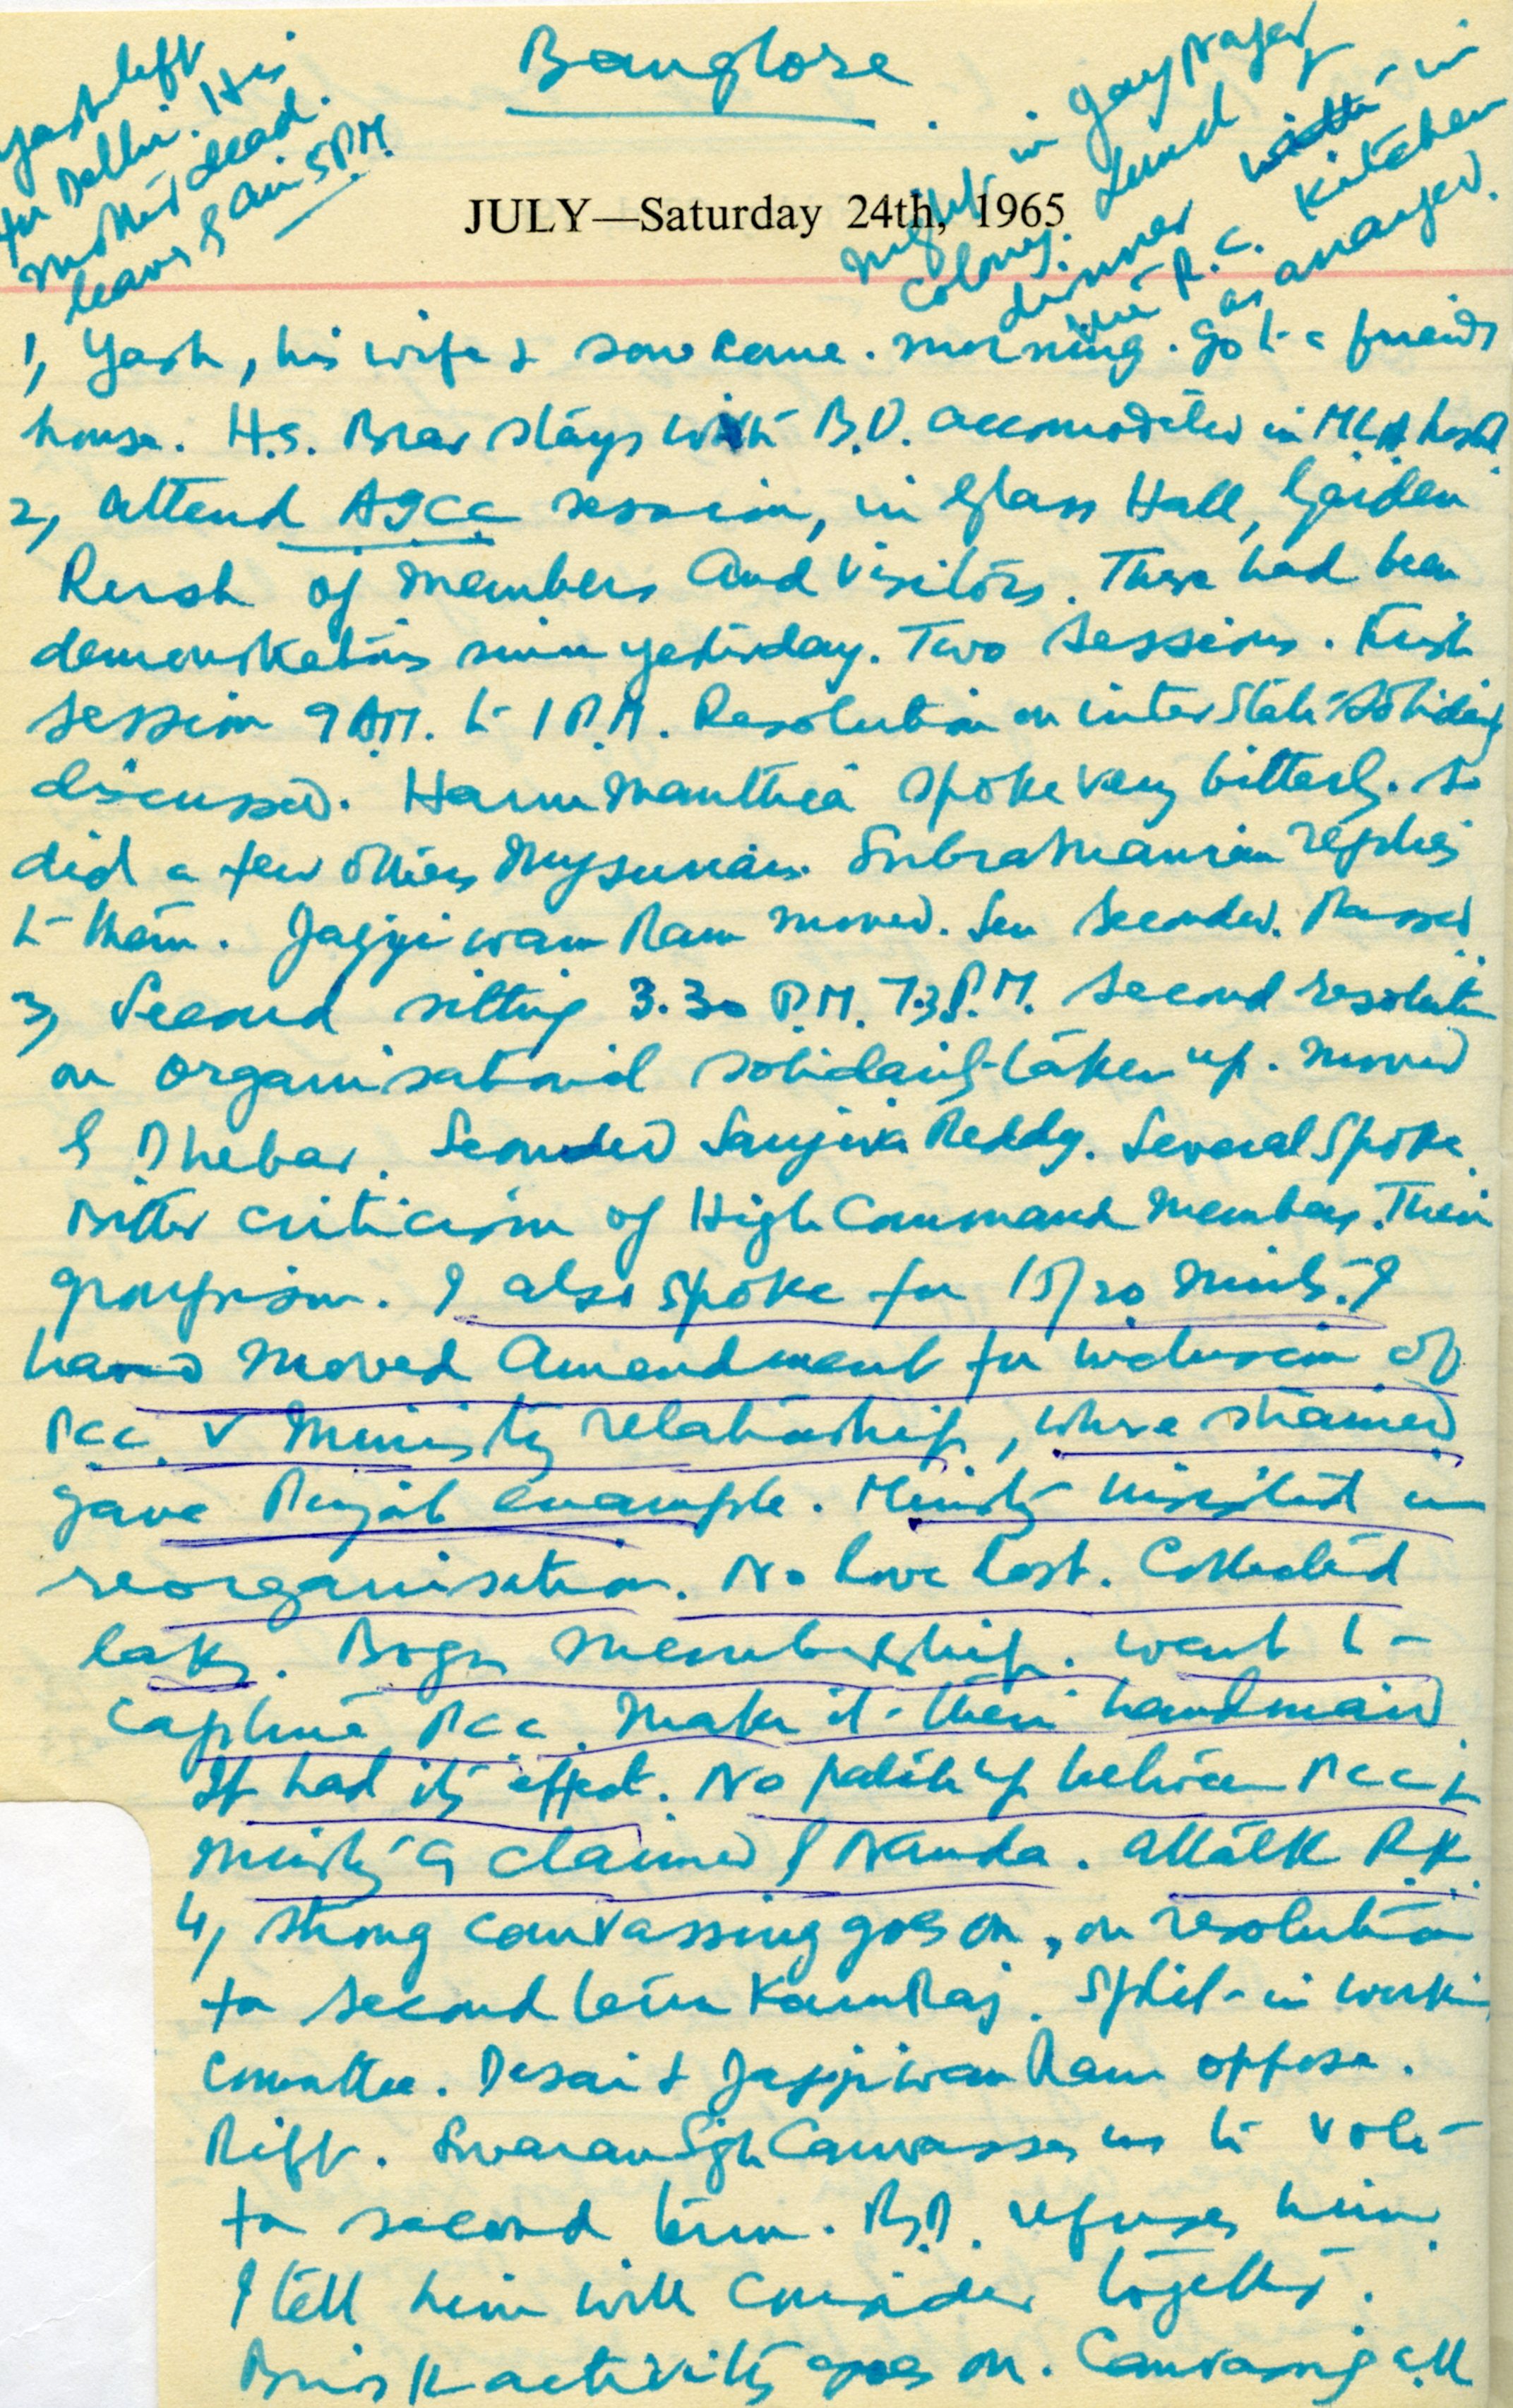 Banglore
Yash left
for Delhi. His
mother dead.
leaves by air 5 P.M.
Night in Jaynager
colony. Lunch &
dinner in
R.C. Kitchen
as arranged.
JULY—Saturday 24th, 1965
1, Yash, his wife & son came. morning. go to a friends
house. H.S. Brar stays with B.D. accomodated in MLA hostel.
2, Attend AICC session, in Glass Hall, Garden
Rush of members and visitors. There had been
demonstrations since yesterday. Two sessions. First
session 9 A.M. to 1 P.M. Resolution on inter State Solidarity
discussed. Hanumanthia spoke very bitterly. So
did a few others Mysurians. Subramaniam replies
to them. Jagjiwan Ram moved. Sen Seconded. Passed.
3, Second sitting 3.30 P.M. 7.3 P.M. Second resolution
on organisational solidarity taken up. moved
by Dhebar. Seconded Sanjiva Reddy. Several Spoke.
Bitter criticism of High Command members. Their
groupism. I also spoke for 15/20 minits. I
had moved Amendment for inclusion of
PCC v Ministry relationship, where strained
gave Punjab example. Ministry insisted on
reorganisation. No love lost. Collected
lakhs. Bogus membership. want to
capture PCC. Make it their handmaid
It had its effect. No patch up between PCC &
ministry as claimed by Nanda. Attack R.K.
4, Strong canvassing goes on, on resolution
for second term KamRaj. Split in working
Committee. Desai & Jagjiwan Ram oppose.
Rift. Swaran Sgh Canvasses us to vote
for second term. B.D. refuses him.
I tell him will consider together.
Brisk activity goes on. Canvassing all